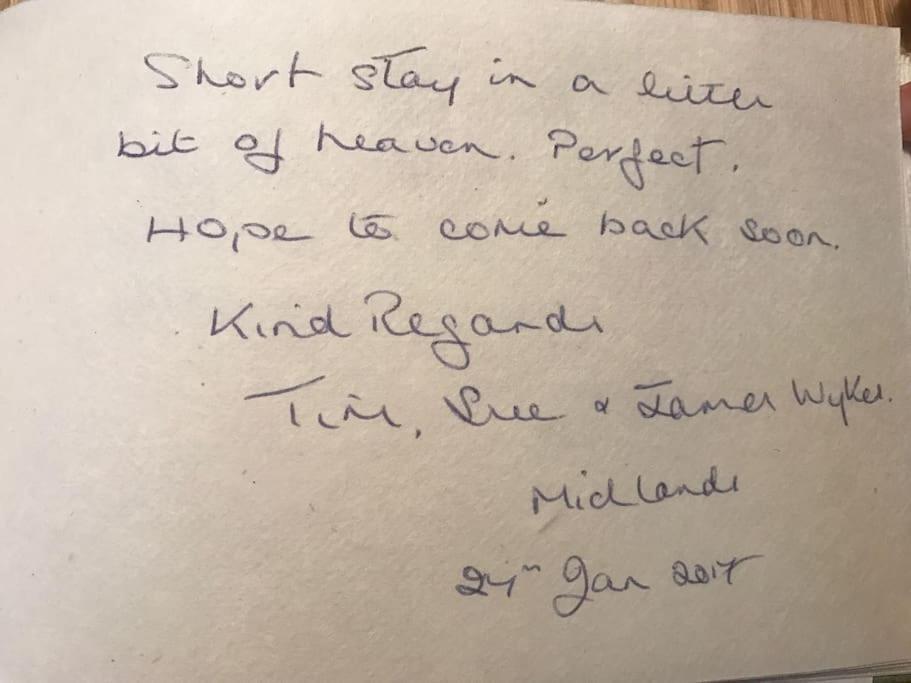 Short stay in a little
bit of heaven. Perfect.
Hope to come back soon.
Kind Regards
Tim, Sue & James Wykes.
Midlands
24th Jan 2017